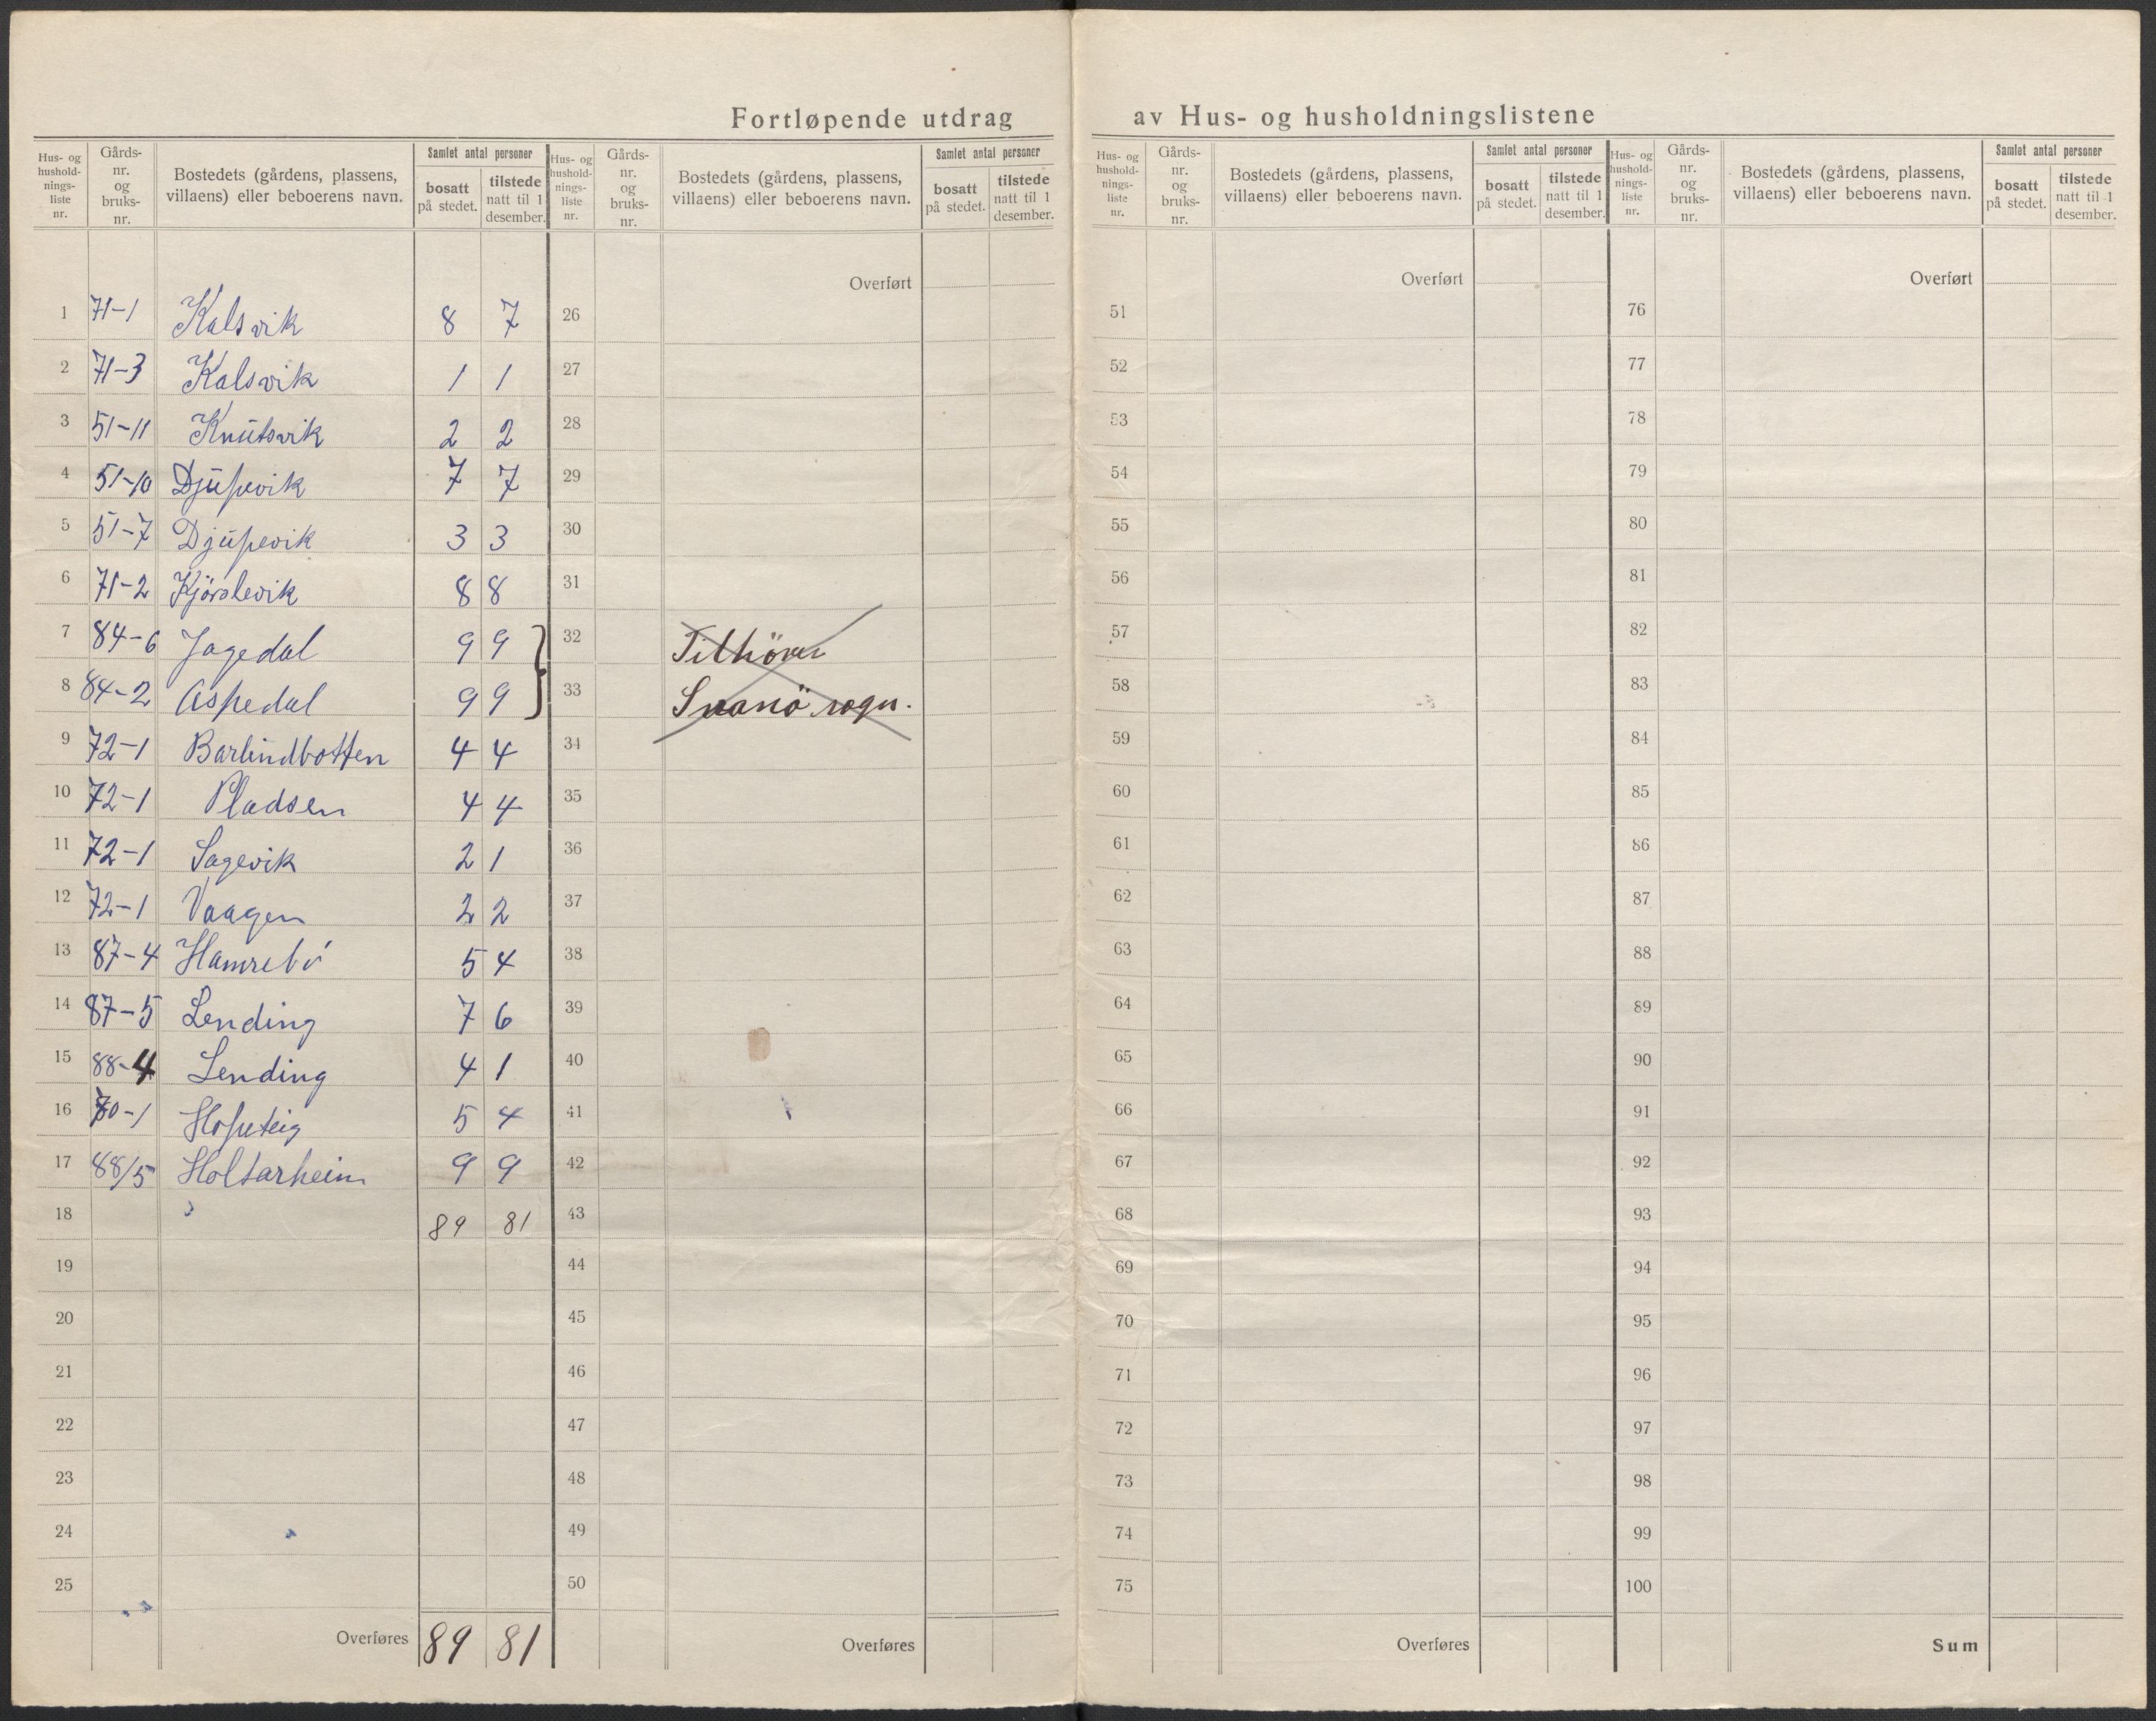 Fortløpende utdrag av Hus- og husholdningslistene
Hus- og hushold- nings- liste nr. | Gårds- nr. og bruks- nr. | Bostedets (gårdens, plassens, villaens) eller beboerens navn. | Samlet antal personer | bosatt på stedet. | tilstede natt til 1 desember.
Hus- og hushold- nings- liste nr. | Gårds- nr. og bruks- nr. | Bostedets (gårdens, plassens, villaens) eller beboerens navn. | Samlet antal personer | bosatt på stedet. | tilstede natt til 1 desember.
Hus- og hushold- nings- liste nr. | Gårds- nr. og bruks- nr. | Bostedets (gårdens, plassens, villaens) eller beboerens navn. | Samlet antal personer | bosatt på stedet. | tilstede natt til 1 desember.
Hus- og hushold- nings- liste nr. | Gårds- nr. og bruks- nr. | Bostedets (gårdens, plassens, villaens) eller beboerens navn. | Samlet antal personer | bosatt på stedet. | tilstede natt til 1 desember.
1 71-1 Kalsvik 8 7
2 71-3 Kalsvik 1 1
3 51-11 Knutsvik 2 2
4 51-10 Djupevik 7 7
5 51-7 Djupevik 3 3
6 71-2 Kjörslevik 8 8
7 84-6 Jagedal 9 9 }
8 84-2 Aspedal 9 9
9 72-1 Barlindbotten 4 4
10 72-1 Pladsen 4 4
11 72-1 Sagevik 2 1
12 72-1 Vaagen 2 2
13 87-4 Hamrebö 5 4
14 87-5 Lending 7 6
15 88-4 Lending 4 1
16 70-1 Hopsteig 5 4
17 88/5 Holtarheim 9 9
18 89 81
19
20
21
22
23
24
25
Overføres 89 81
Overført
26
27
28
29
30
31
32 Tilhörer
33 Svanö sogn.
34
35
36
37
38
39
40
41
42
43
44
45
46
47
48
49
50
Overføres
Overført
51
52
53
54
55
56
57
58
59
60
61
62
63
64
65
66
67
68
69
70
71
72
73
74
75
Overføres
Overført
76
77
78
79
80
81
82
83
84
85
86
87
88
89
90
91
92
93
94
95
96
97
98
99
100
Sum